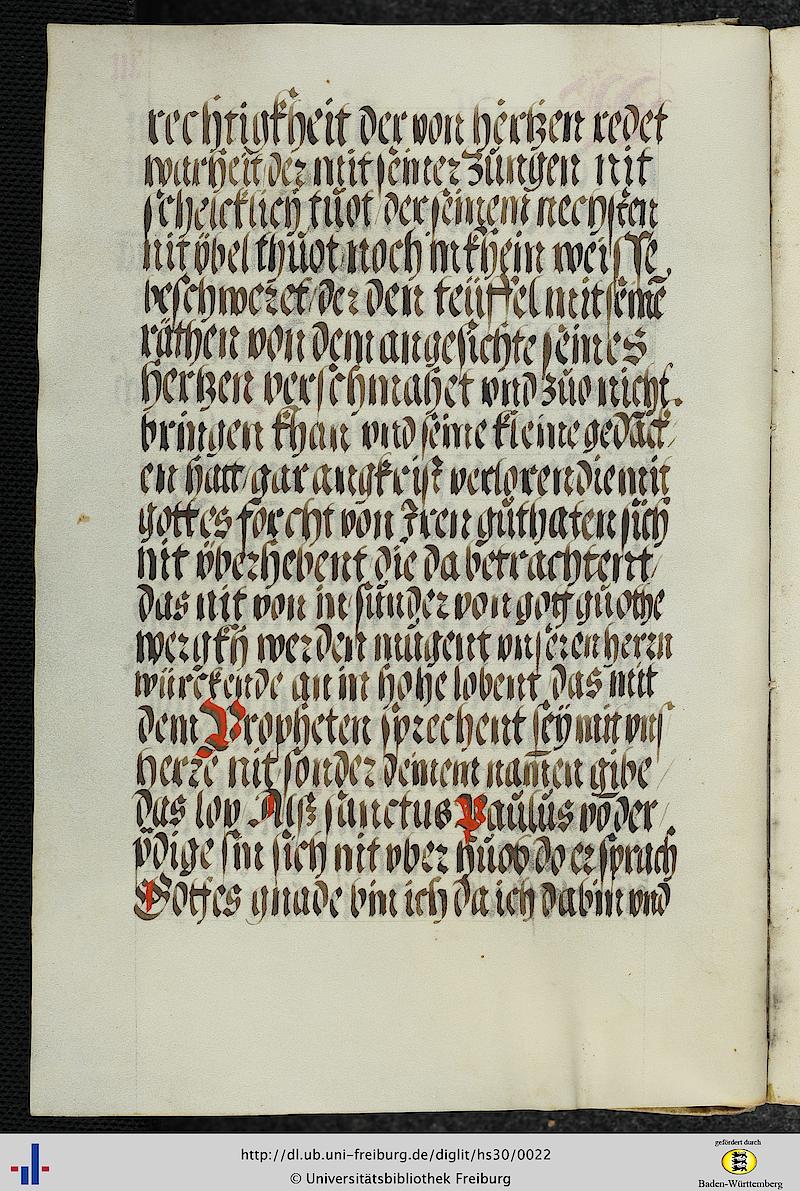 rechtigkheit der von hertzen redet
warheit der mit seiner zungen nit
scheicklich tuot / der seinem nechsten
nit öbel thuot noch in khein weisse
beschweret / der den teüffel mit seinē
räthen von dem angesichte seines
hertzen verschmahet vnd zuo nicht
bringen khan vnd seine kleine gedäck/
en hatt / gar an gkrist verloren die mit
gottes forcht von Jren güthaten sich
nit überhebent die da betrachtent /
das nit von in sunder von gott guothe
wergkh werden mügent vnseren herrn
würckende an in hohe lobent das mit
dem Propheten sprechent sey mit vns
herre nit sonder deinem namen gibe /
das lop Alß sanctus Paulus vō der /
pdige sin sich nit vber huob do er sprach
Gottes gnade bin ich da ich da bin vnd
http://dl.ub.uni-freiburg.de/diglit/hs30/0022
© Universitätsbibliothek Freiburg
gefördert durch
Baden-Württemberg